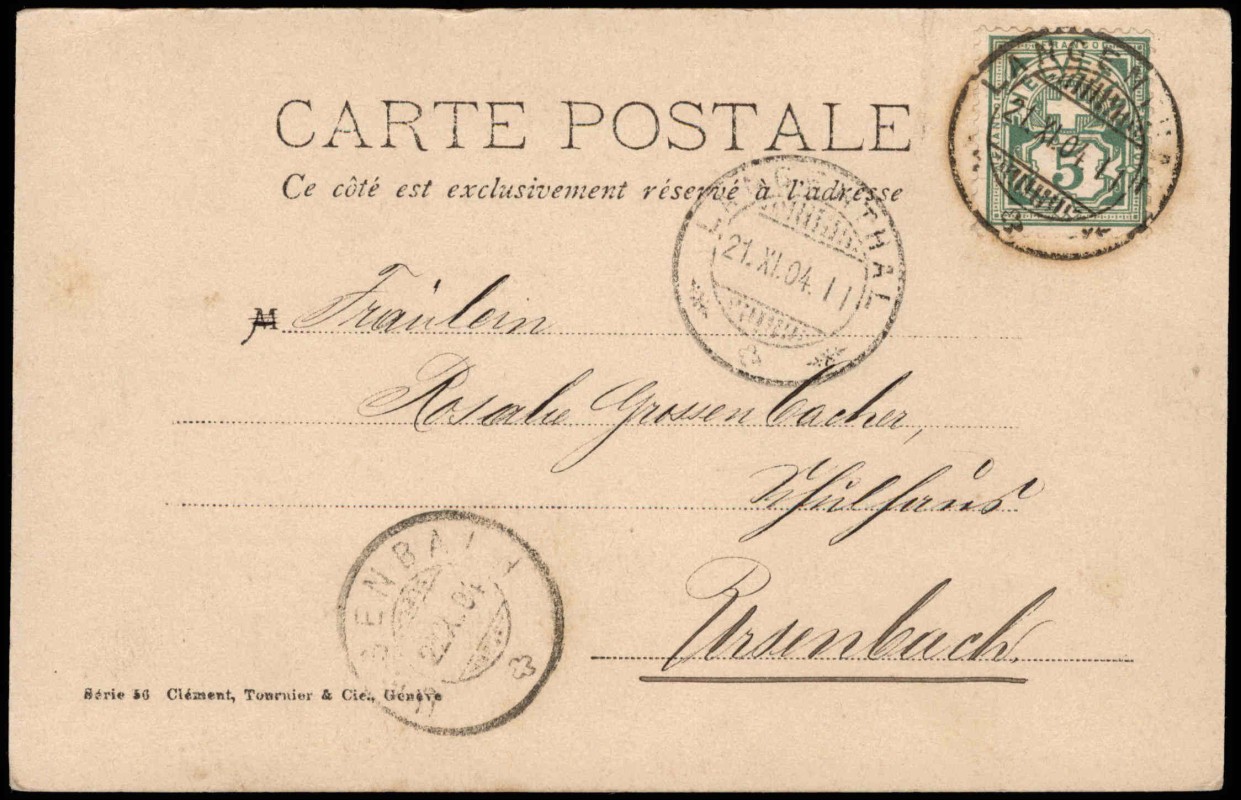 CARTE POSTALE
Ce côté est exclusivement réservé à l'adresse
FRANCO
5
LANGENTHAL
21.XI.04. 11
LANGENTHAL
21.XI.04. 11
M Fräulein
Rosalie Grossenbacher,
Schulhaus
Ursenbach.
22.XI.04
Série 56 Clément, Tournier & Cie., Genève